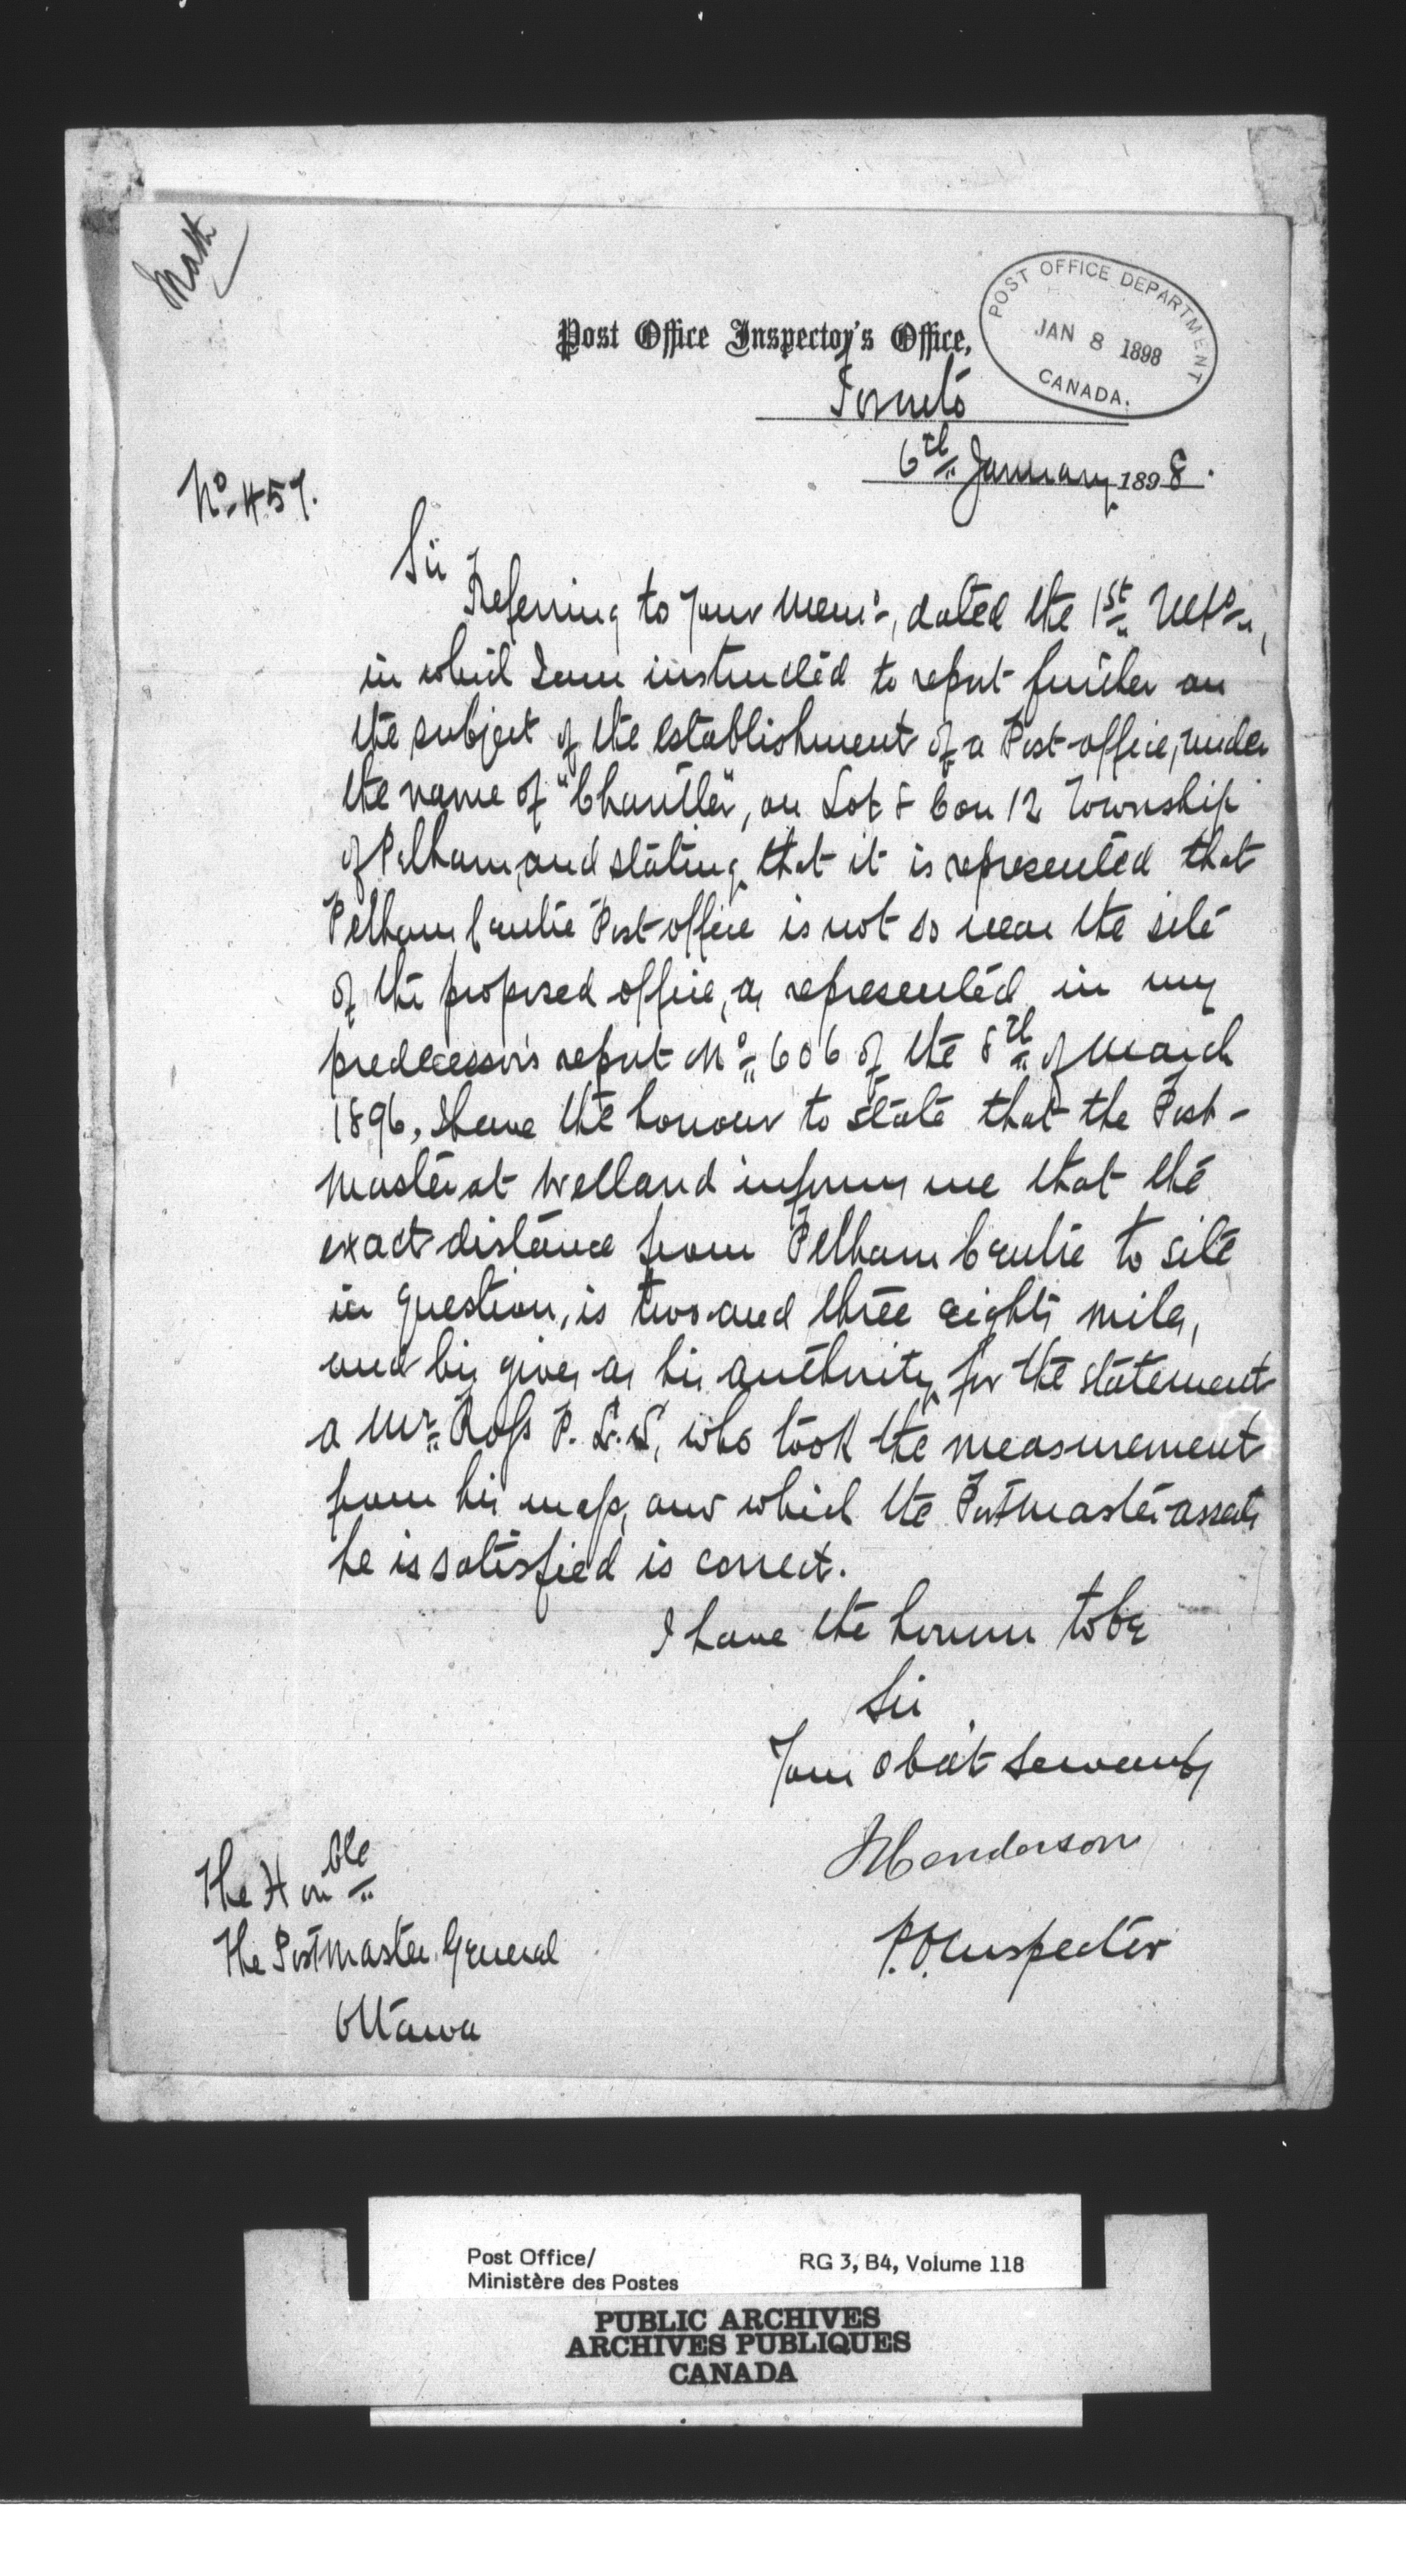 Math
POST OFFICE DEPARTMENT
JAN 8 1898
CANADA.
Post Office Inspector's Office,
Toronto
6th January 1898.
No 457.
Sir
Referring to your Memo, dated the 1st Ulto,
in which I am instructed to report further on
the subject of the establishment of a Post office, under
the name of "Chantler", on Lot 8 Con 12 Township
of Pelham, and stating that it is represented that
Pelham Centre Post office is not so near the site
of the proposed office, as represented in my
predecessor's report No 606 of the 8th of March
1896, I have the honour to state that the Post-
master at Welland informs me that the
exact distance from Pelham Centre to site
in question, is two and three eights miles,
and he gives as his authority for the statement
a Mr Ross P. L. S, who took the measurement
from his map, and which the Postmaster asserts
he is satisfied is correct.
I have the honour to be
Sir
Your obdt servant
Henderson
P.O. Inspector
The Honble
The Postmaster General
Ottawa
Post Office/
Ministère des Postes
RG 3, B4, Volume 118
PUBLIC ARCHIVES
ARCHIVES PUBLIQUES
CANADA